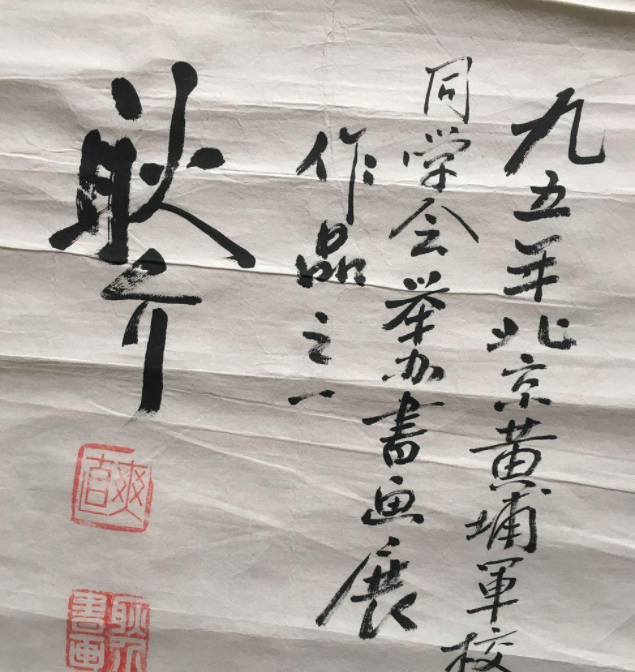 九五年北京黄埔軍校
同学会举办書画展
作品之一
耿介
爽直
耿介
書画